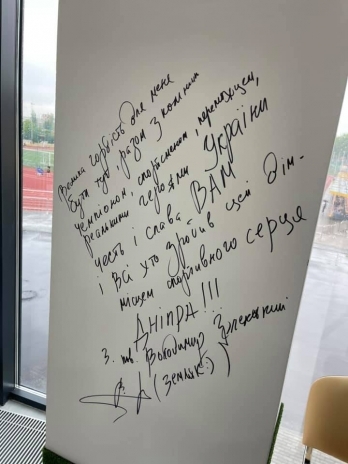 Велика гордість для мене
бути тут, разом з кожним
чемпіоном, спортсменом, переможцем,
реальними героями України
честь і слава ВАМ
і всі хто зробив цей дім -
місцем спортивного серця
ДНІПРА!!!
З пов. Володимир Зеленський
(земляк:))